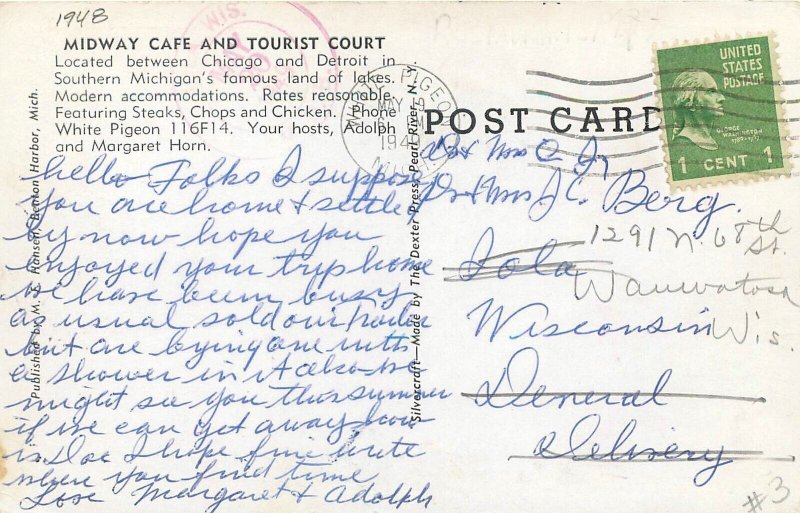 1948
WIS.
MIDWAY CAFE AND TOURIST COURT
Located between Chicago and Detroit in
Southern Michigan's famous land of lakes.
Modern accommodations. Rates reasonable.
Featuring Steaks, Chops and Chicken. Phone
White Pigeon 116F14. Your hosts, Adolph
and Margaret Horn.
hello Folks I suppose
you are home & settle
by now hope you
enjoyed your trip home
we have been busy
as usual sold our trailer
but are buying one with
a shower in it also we
might see you this summer
if we can get away how
is Doc I hope fine write
when you find time
Love Margaret & Adolph
Published by M. E. Hansen, Benton Harbor, Mich.
"Silvercraft—Made by The Dexter Press, Pearl River, N. Y.
WHITE PIGEON
MAY 19
MICH
POST CARD
UNITED
STATES
POSTAGE
GEORGE
WASHINGTON
1789-1797
1 CENT 1
Mrs J. C. Berg.
Iola
1291 N. 68th
St.
Wauwatosa
Wisconsin
Wis.
General
Delivery
#3